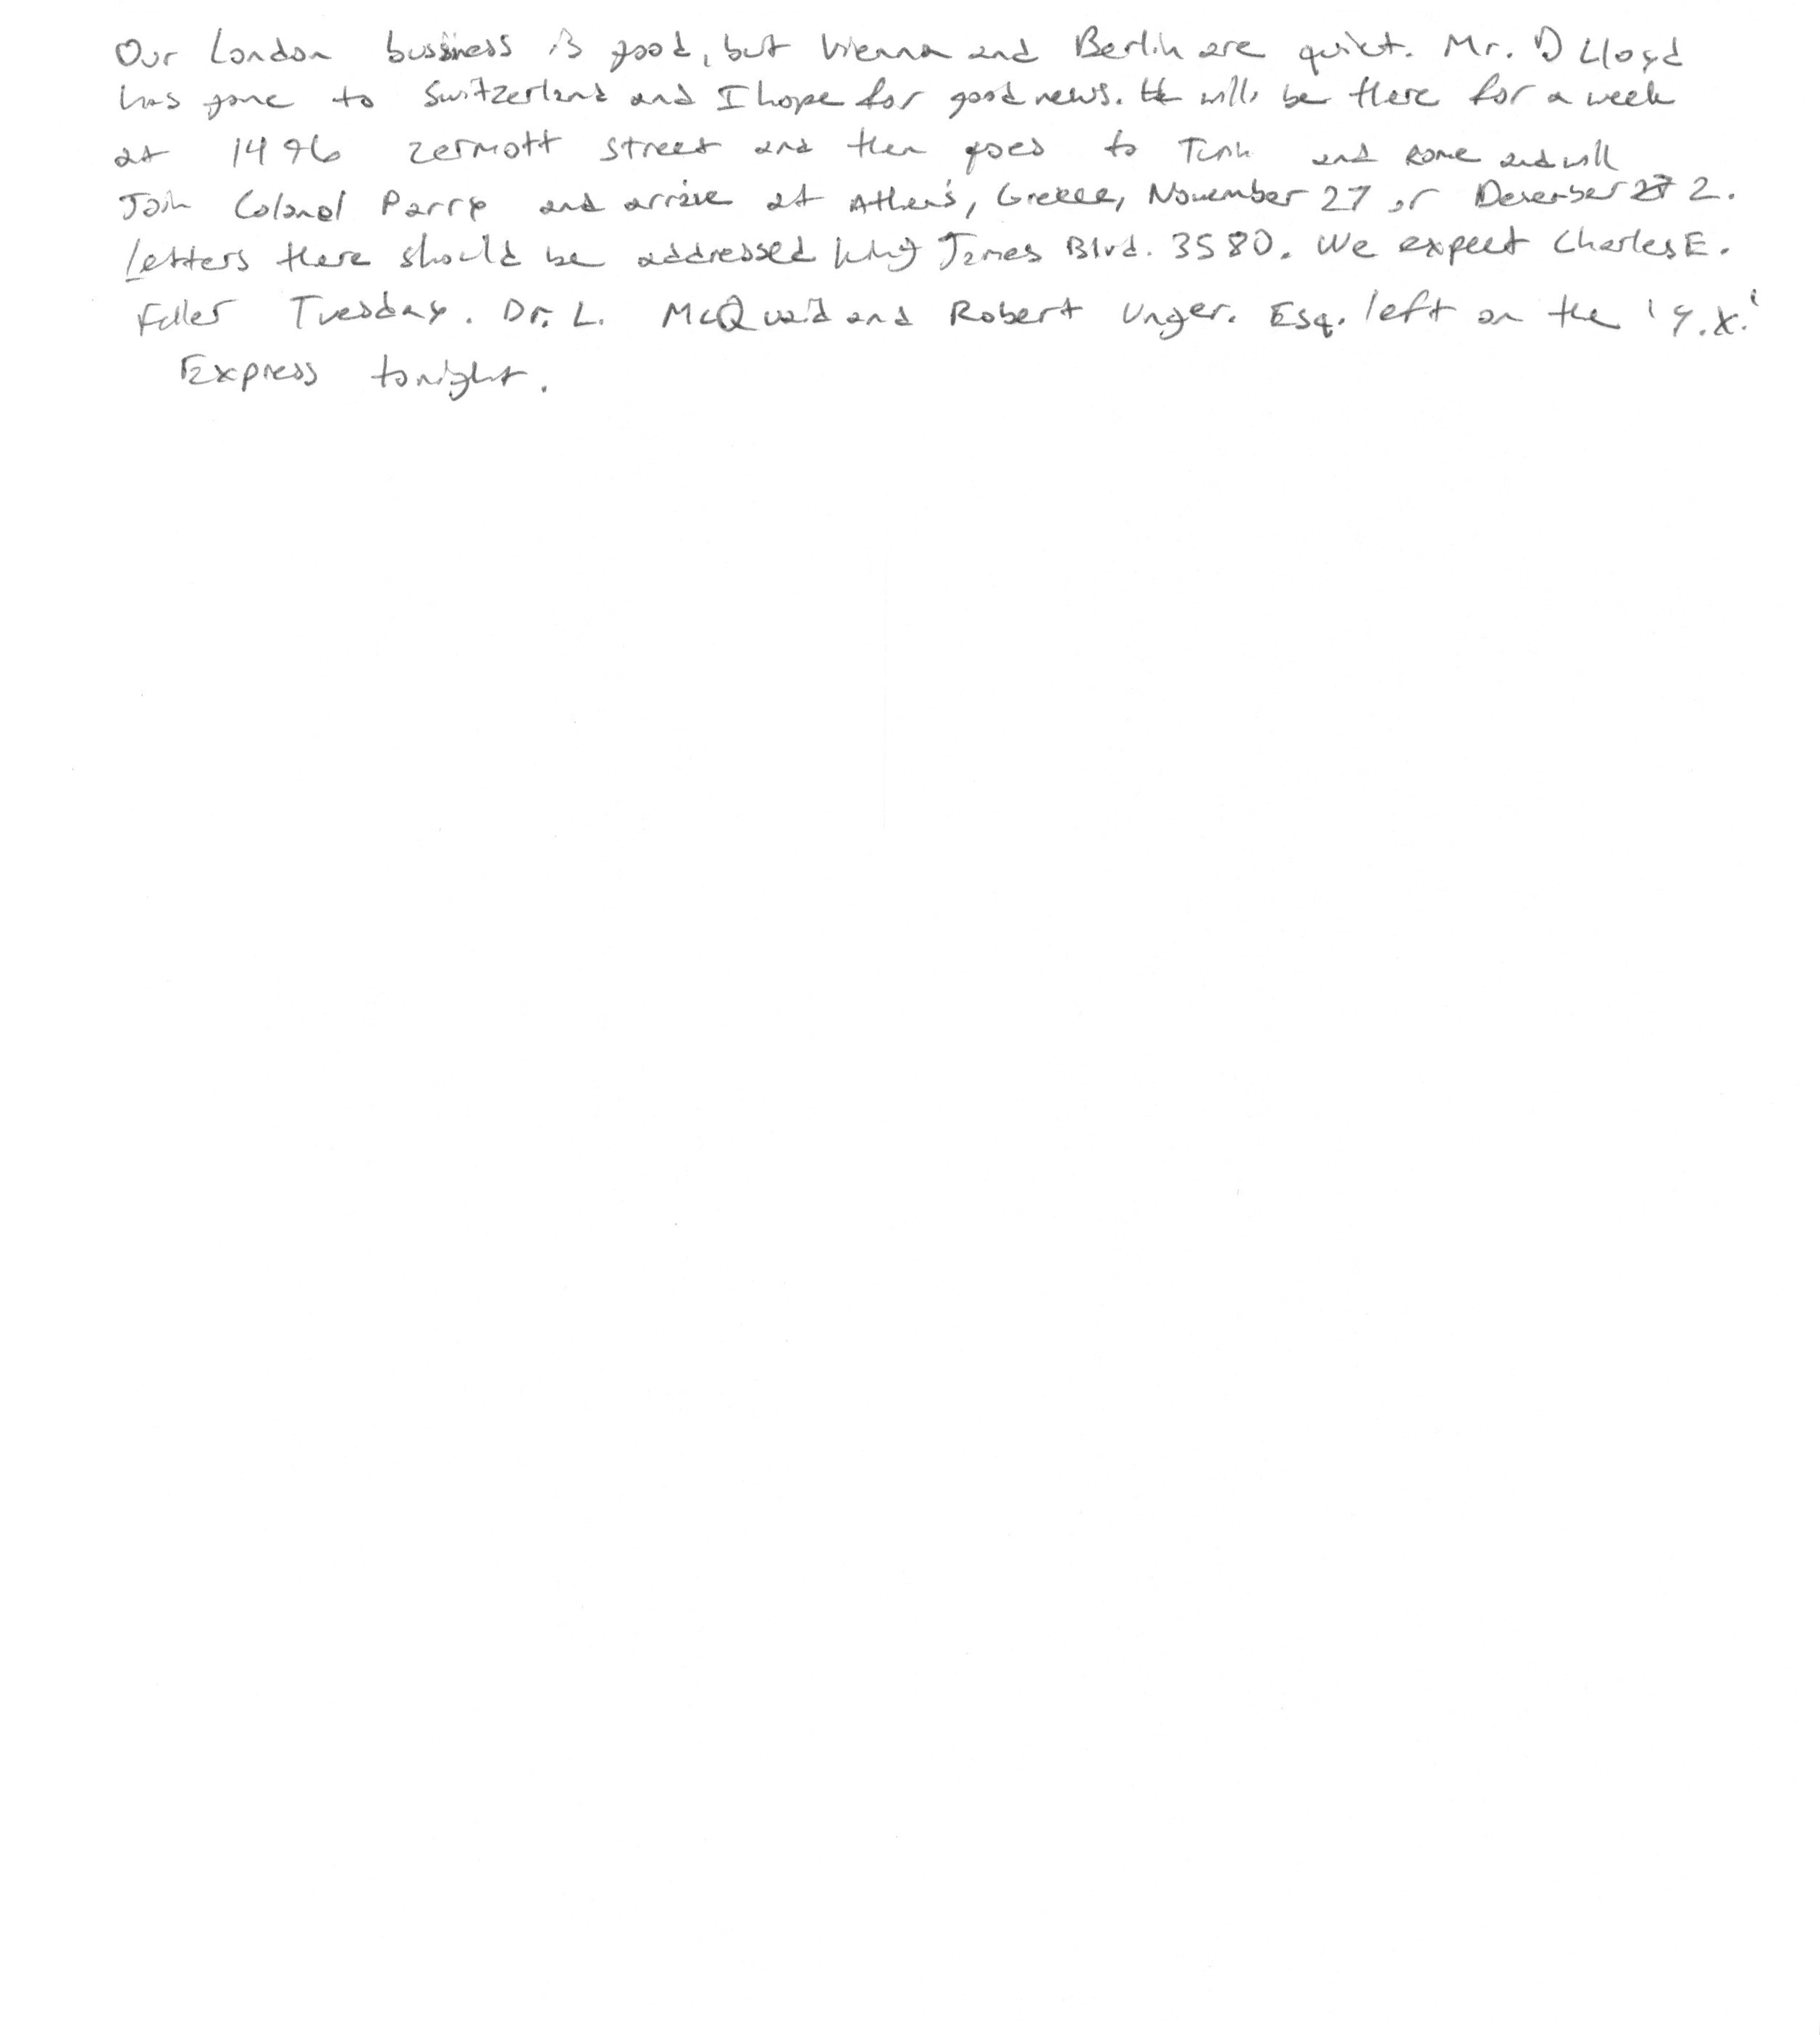 Our London bussiness is good, but Vienna and Berlin are quiet. Mr. D Lloyd
has gone to Switzerland and I hope for good news. He will be there for a week
at 1496 Zermott Street and then goes to Turin and Rome and will
Join Colonel Parry and arrive at Athens, Greece, November 27 or December 2.
letters there should be addressed King James Blvd. 3580. We expect Charles E.
Fuller Tuesday. Dr. L. McQuaid and Robert Unger. Esq. left on the 'Y.X.'
Express tonight.